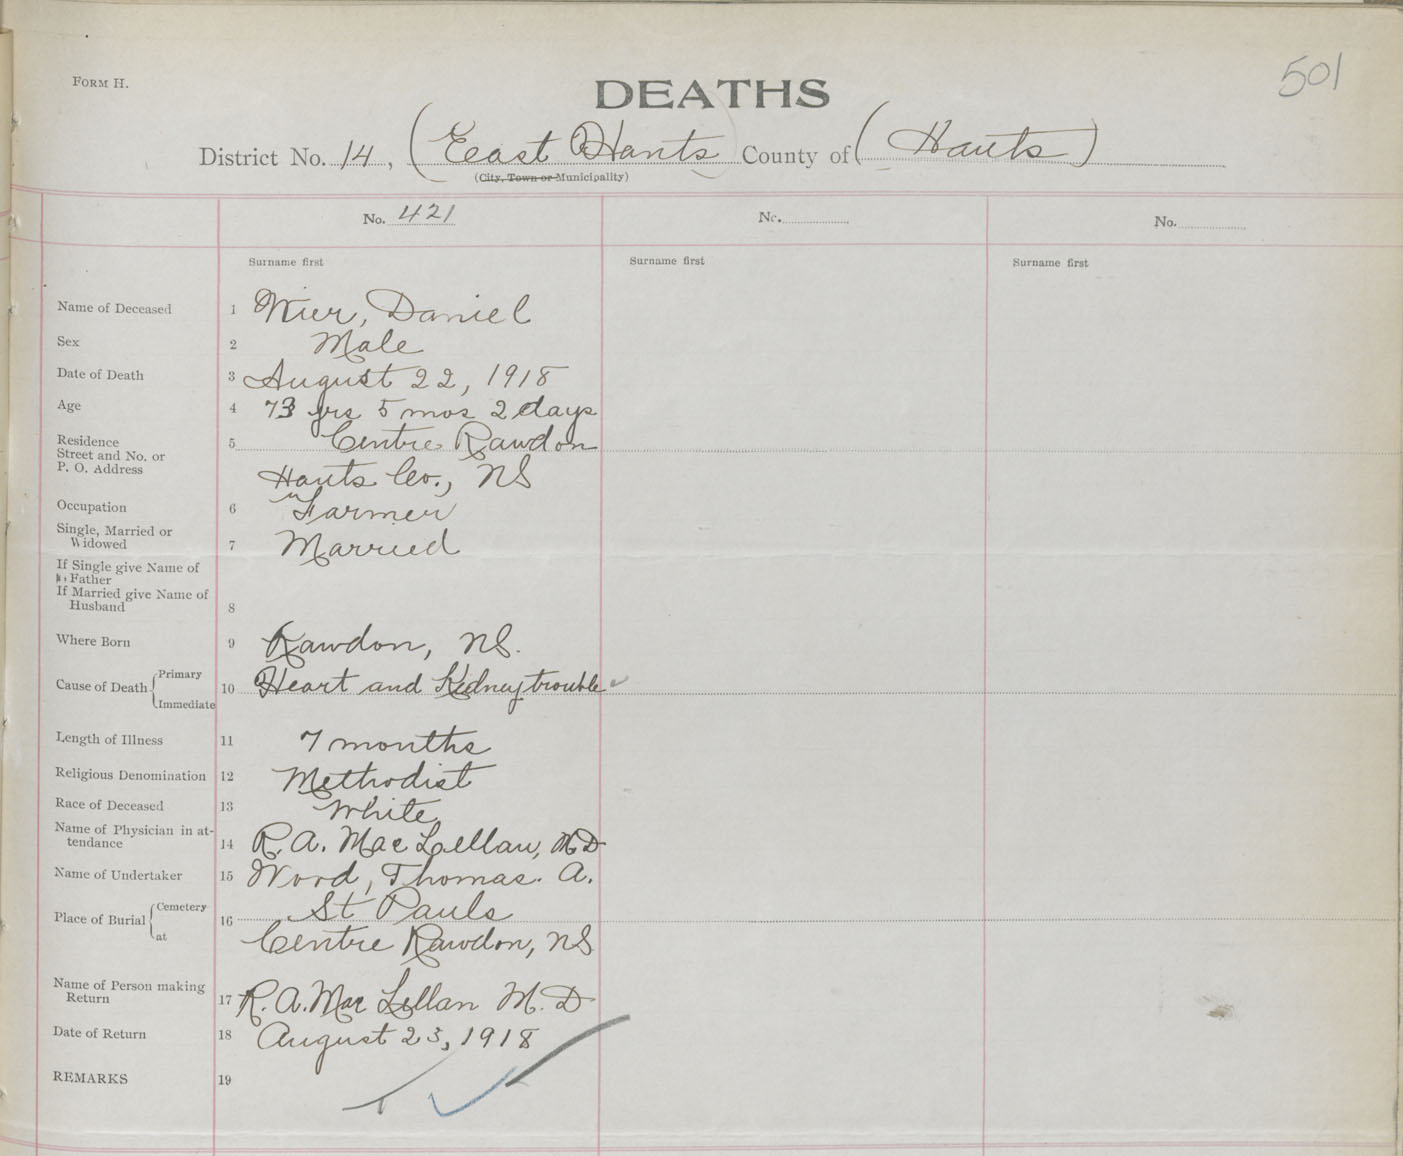 FORM H.
DEATHS
501
District No. 14, (East Hants) County of (Hants)
(City, Town or Municipality)
No. 421
No.
No.
Surname first
Surname first
Surname first
Name of Deceased 1 Wier, Daniel
Sex 2 Male
Date of Death 3 August 22, 1918
Age 4 73 yrs 5 mos 2 days
Residence
Street and No. or
P. O. Address
5 Centre Rawdon
Hants Co., NS
Occupation 6 Farmer
Single, Married or
Widowed
7 Married
If Single give Name of
Father
If Married give Name of
Husband
8
Where Born 9 Rawdon, NS.
Cause of Death Primary
Immediate
10 Heart and Kidney trouble
Length of Illness 11 7 months
Religious Denomination 12 Methodist
Race of Deceased 13 White
Name of Physician in at-
tendance
14 R. A. Mac Lellan, M D
Name of Undertaker 15 Wood, Thomas. A.
Place of Burial Cemetery
at
16 St Pauls
Centre Rawdon, NS
Name of Person making
Return
17 R. A. Mac Lellan M. D
Date of Return 18 August 23, 1918
REMARKS 19